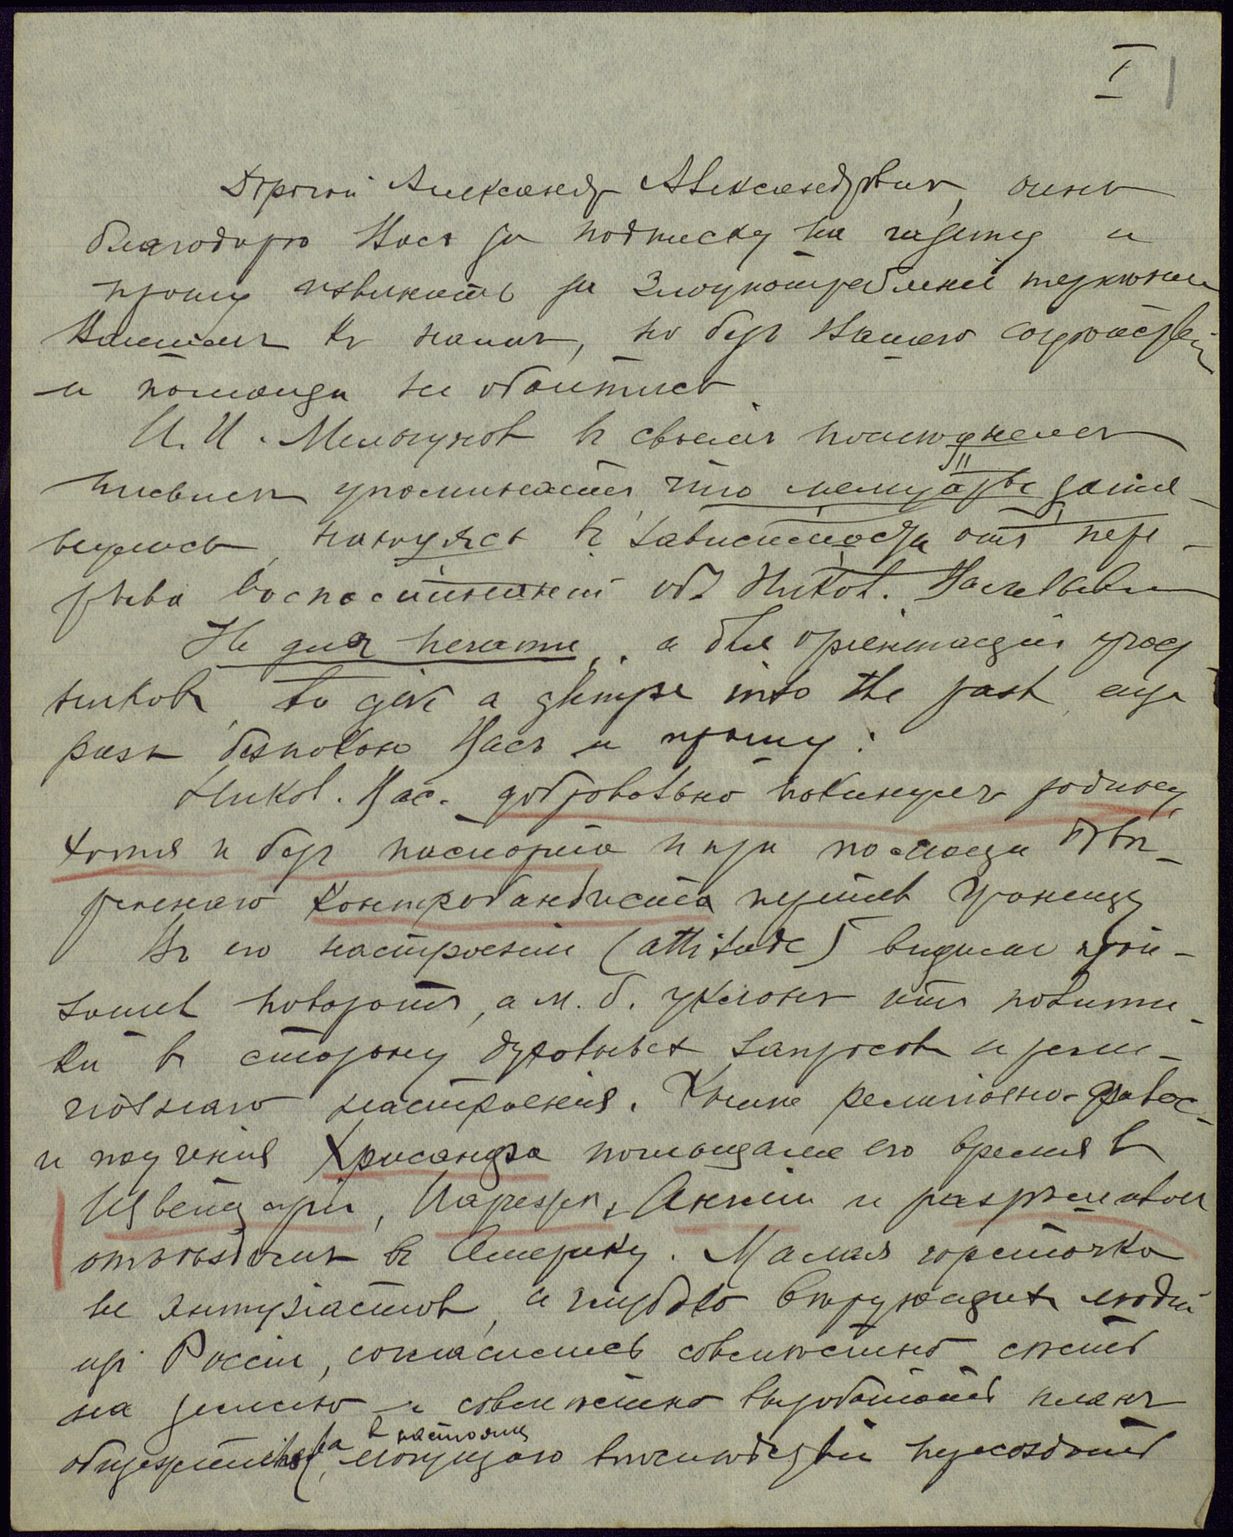 I
Дорогой Александр Александрович, очень
благодарю Вас за подписку на газету и
прошу извинить за злоупотребленiе терпением
Вашим к нам, но без Вашего
и помощи не обойтись
И. И. Мельгунов в своем последнем
письме упоминает, что мемуары затя-
нулись, находясь в зависимости от пере-
рыва воспоминанiй об Никол. Васильев.
Не для печати, а для орiентацiи
ников, to give a glimpse into the past, еще
раз безпокою Вас и прошу:
Никол. Вас. добровольно покинул родину
хотя и без паспорта и при помощи
контробандиста перешел границу
В его настроенiи (attitude) видимо прои-
зошел поворот, а м. б. уклон от полити-
ки в сторону духовных запросов и рели-
гiозного настроенiя. Книги религiозно-филос.
и поученiя поглощали его время в
Швейцарiи, Париже, Англiи и
отъездом в Америку. Малая горсточка
не энтузiастов, а глубоко верующих людей
из Россiи, согласились совместно сесть
на землю и совместно выработать план
общежитiя, в настоящ
могущаго впоследствiи пересоздать